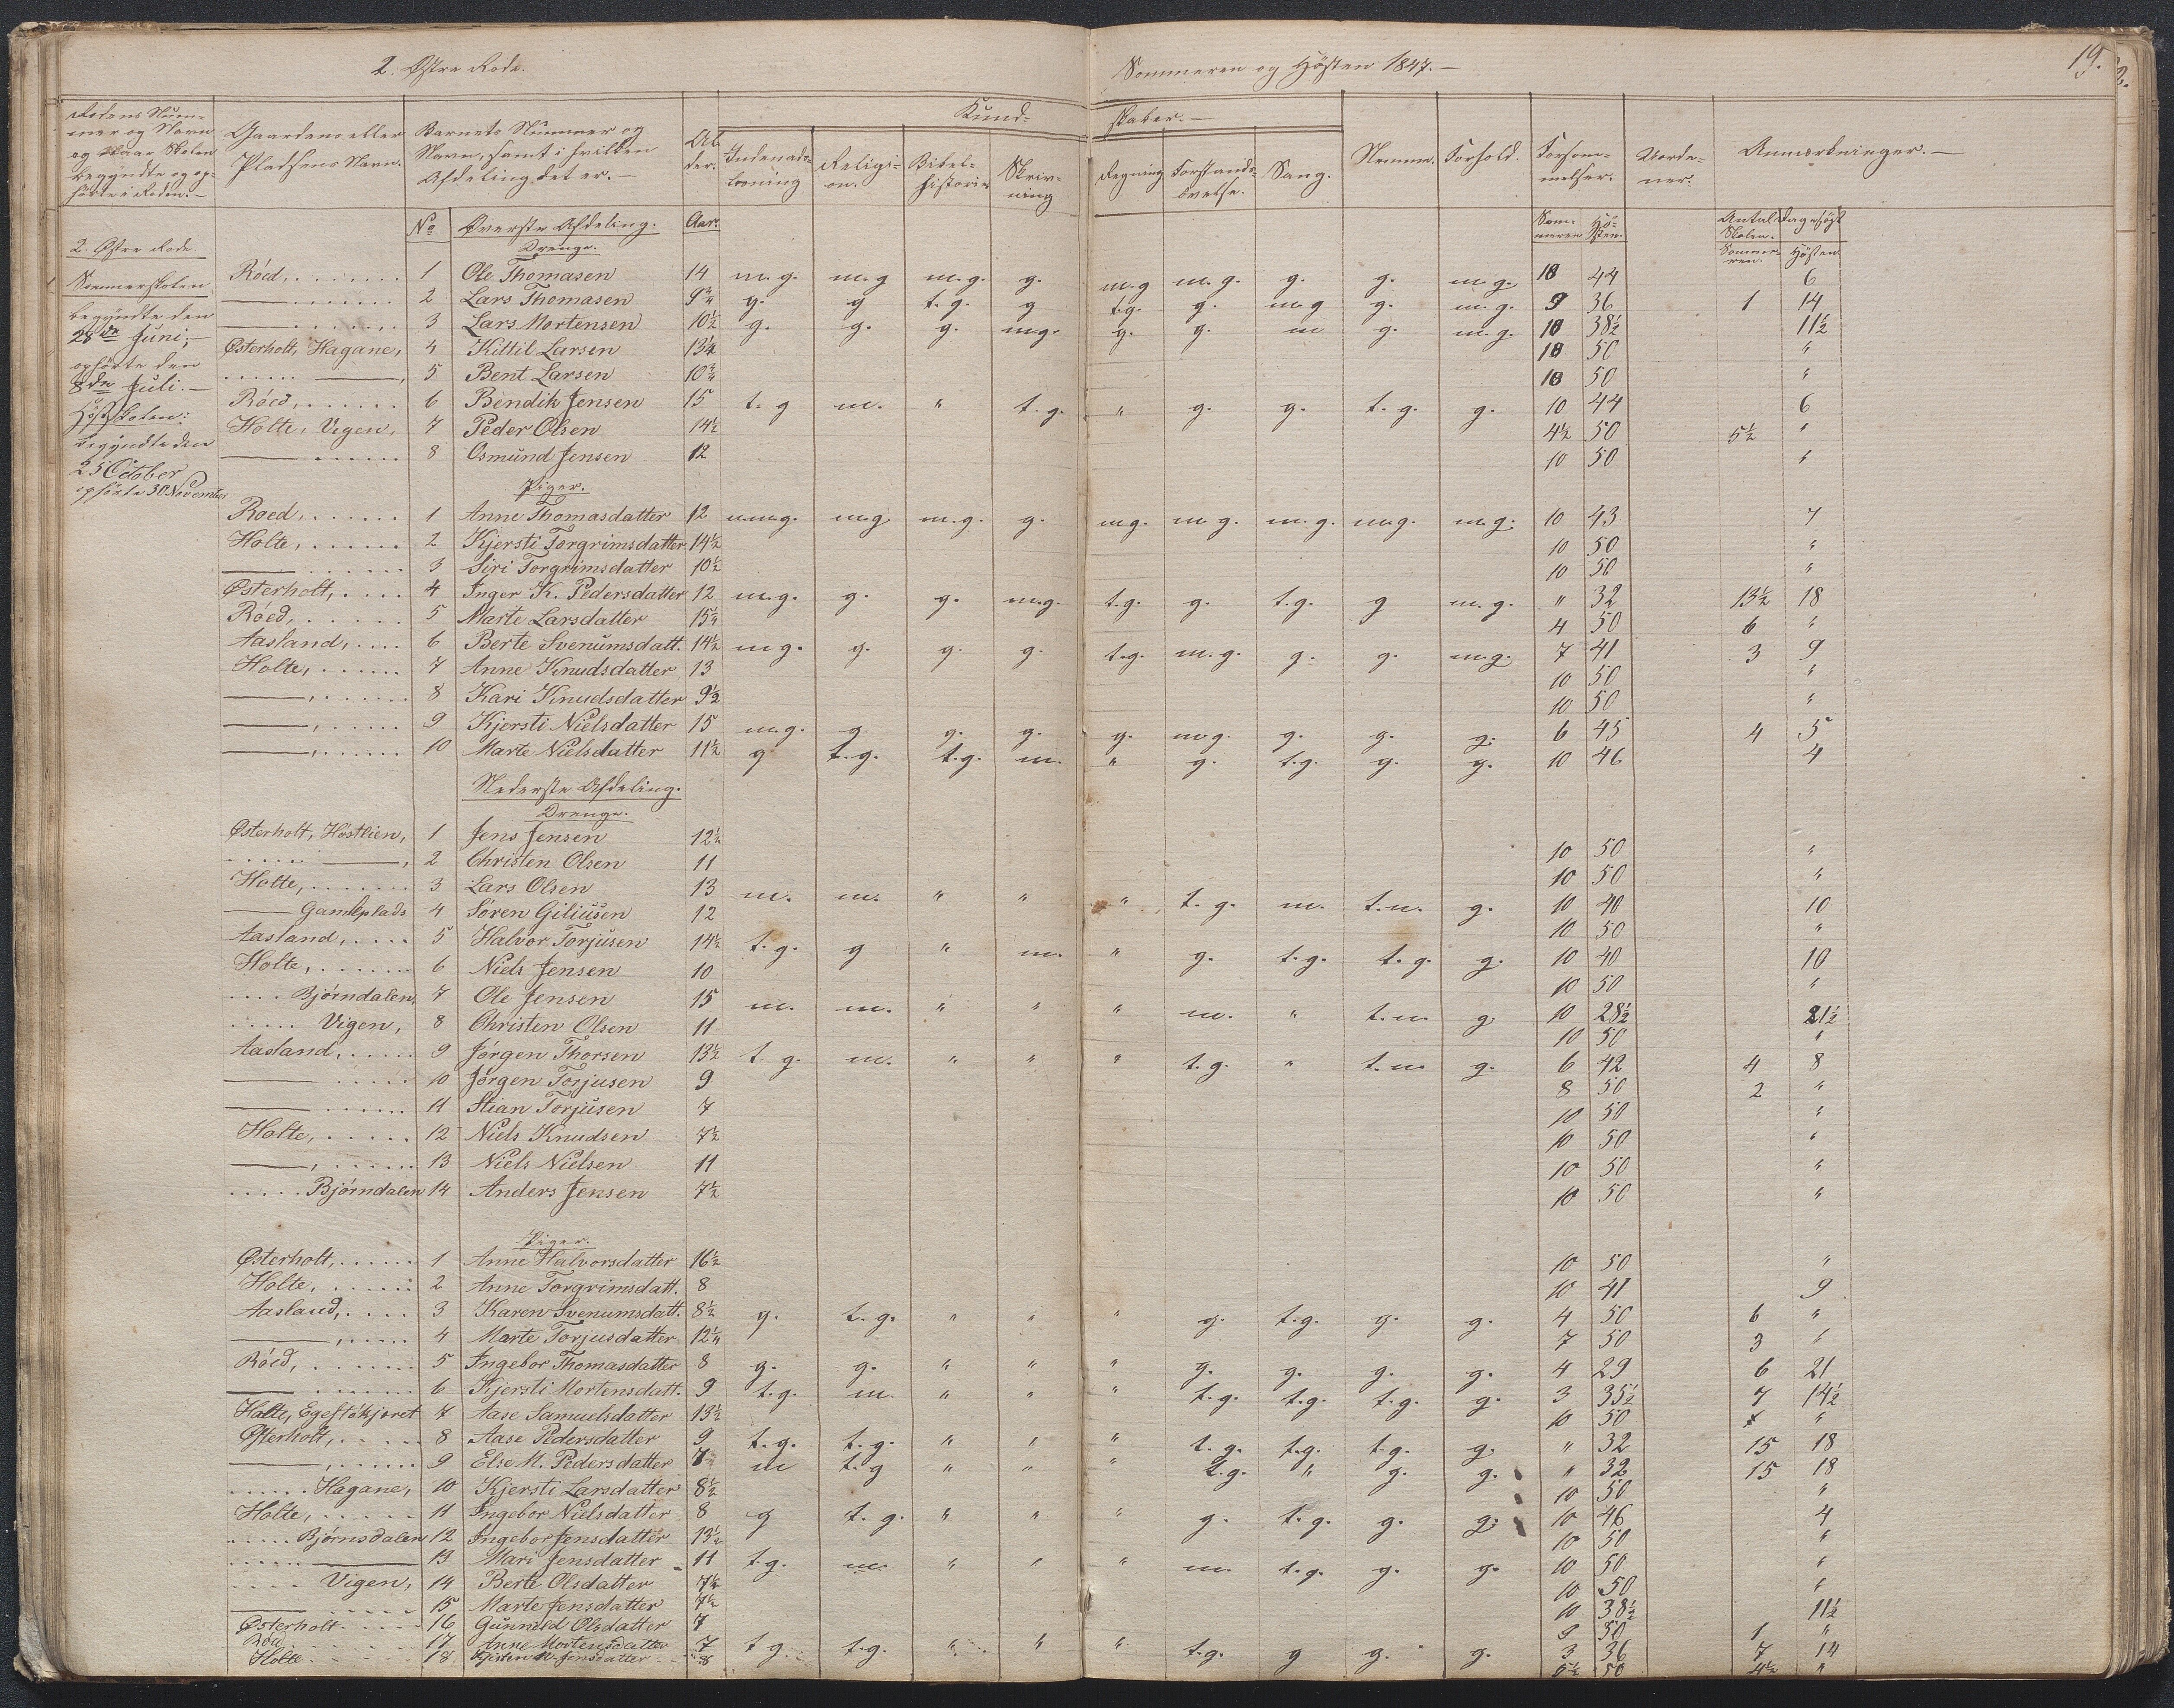 2. Østre Rode.
Sommeren og Høsten 1847.—
19.
Rodens Num-
mer og Navn
og naar Skolen
begyndte og op-
hørte i Roden.—
Gaardens eller
Pladsens Navn.
Barnets Nummer og
Navn, samt i hvilken
Afdeling det er.—
Al
der.
Kund-
skaber.—
Indenad-
læsning
Religi-
on.
Bibel-
historie
Skriv-
ning
Regning
Forstands-
øvelse.
Sang.
Nemme.
Forhold.
Forsøm-
melser.
Anmærkninger.—
No
Øverste Afdeling.
Aar.
Som-
meren
Hø-
sten.
Antal Dage søgt
Skolen.
Somme-
ren.
Høsten
Drenge.
2. Østre Rode
Sommerskolen
begyndte den
28de Juni,—
ophørte den
8de Juli.—
Høstskolen:
begyndte den
25 October
ophørte 30 November
Röed, 1 Ole Thomasen 14 m.g. m.g m.g. g. m.g m.g. g. g. m.g. 10 44 6
— 2 Lars Thomasen 9¾ g. g t.g. g t.g. g. m.g g. m.g. 9 36 1 14
— 3 Lars Mortensen 10½ g. g. g. m.g. g. g. m g. m.g. 10 38½ 11½
Østerholt, Hagane, 4 Kittil Larsen 13¼ 10 50 "
— , 5 Bent Larsen 10¾ 10 50 "
Röed, 6 Bendik Jensen 15 t.g m. " t.g. " g. g. t.g. g. 10 44 6
Holte, Vigen, 7 Peder Olsen 14½ 4½ 50 5½ "
— 8 Osmund Jensen 12 10 50 "
Piger.
Roed, 1 Anne Thomasdatter 12 m.g. m.g. m.g. g. m.g. m.g. m.g. m.g. m.g. 10 43 7
Holte, 2 Kjersti Torgrimsdatter 14½ 10 50 "
— 3 Siri Torgrimsdatter 10½ 10 50 "
Østerholt, 4 Inger K. Pedersdatter 12 m.g. g. g. m.g. t.g. g. t.g. g m.g. " 32 13½ 18
Röed, 5 Marte Larsdatter 15½ 4 50 6 "
Aasland, 6 Berte Svenumsdatt. 14½ m.g. g. g. g. t.g. m.g. g. g. m.g. 7 41 3 9
Holte, 7 Anne Knudsdatter 13 10 50 "
— , 8 Kari Knudsdatter 9½ 10 50 "
— , 9 Kjersti Nielsdatter 15 m.g. g g. g. g. m.g. g. g. g. 6 45 4 5
— , 10 Marte Nielsdatter 11½ g t.g. t.g. m. " g. t.g. g. g. 10 46 4
Nederste Afdeling.
Drenge.
Østerholt, Höstlien, 1 Jens Jensen 12½ 10 50 "
— , 2 Christen Olsen 11 10 50 "
Holte, 3 Lars Olsen 13 m. m. " " " t.g. m. t.m. g. 10 40 10
— Gamlplads 4 Søren Giliusen 12 10 50 "
Aasland, 5 Halvor Torjusen 14½ t.g. g " m. " g. t.g. t.g. g. 10 40 10
Holte, 6 Niels Jensen 10 10 50 "
Bjørndalen, 7 Ole Jensen 15 m. m. " " " m. " t.m g. 10 28½ 21½
Vigen, 8 Christen Olsen 11 10 50 "
Aasland, 9 Jørgen Thorsen 13½ t.g. m. " " " t.g. " t.m g. 6 42 4 8
— 10 Jørgen Torjusen 9 8 50 2 "
— 11 Stian Torjusen 7 10 50 "
Holte, 12 Niels Knudsen 7½ 10 50 "
— , 13 Niels Nielsen 11 10 50 "
Bjørndalen 14 Anders Jensen 7½ 10 50 "
Piger.
Østerholt, 1 Anne Halvorsdatter 16½ 10 50 "
Holte, 2 Anne Torgrimsdatt. 8 10 41 9
Aasland, 3 Karen Svenumsdatt. 8½ g. t.g. " " " g. t.g. g. g. 4 50 6 "
— , 4 Marte Torjusdatter 12¼ 7 50 3 "
Röed, 5 Ingebor Thomasdatter 8 g. g. " " " g. g. g. g. 4 29 6 21
— 6 Kjersti Mortensdatt. 9 t.g. m. " " " t.g. t.g. t.g. g. 3 35½ 7 14½
Holte, Egestökjæret 7 Aase Samuelsdatter 13½ 10 50 "
Østerholt, 8 Aase Pedersdatter 9 t.g. t.g. " " " t.g. t.g. t.g. g. " 32 15 18
— , 9 Else M. Pedersdatter 7 m t.g " " " t.g. " g. g. " 32 15 18
Hagane, 10 Kjersti Larsdatter 8½ 10 50 "
Holte, 11 Ingebor Nielsdatter 8 g t.g. " " " g. t.g. g. g. 10 46 4
Bjørnsdalen 12 Ingebor Jensdatter 13½ 10 50 "
— 13 Mari Jensdatter 11 t.g. m. " " " m. t.g. g. g. 10 50 "
Vigen, 14 Berte Olsdatter 7½ 10 50 "
— 15 Marte Jensdatter 7½ 10 38½ 11½
Østerholt 16 Gunnild Olsdatter 7 9 50 1 "
Röd 17 Anne Mortensdatter 7 t g t.g. " " " t.g. g g. g. 3 36 7 14
Holte 18 Jensdatter 8 5½ 50 4½ "